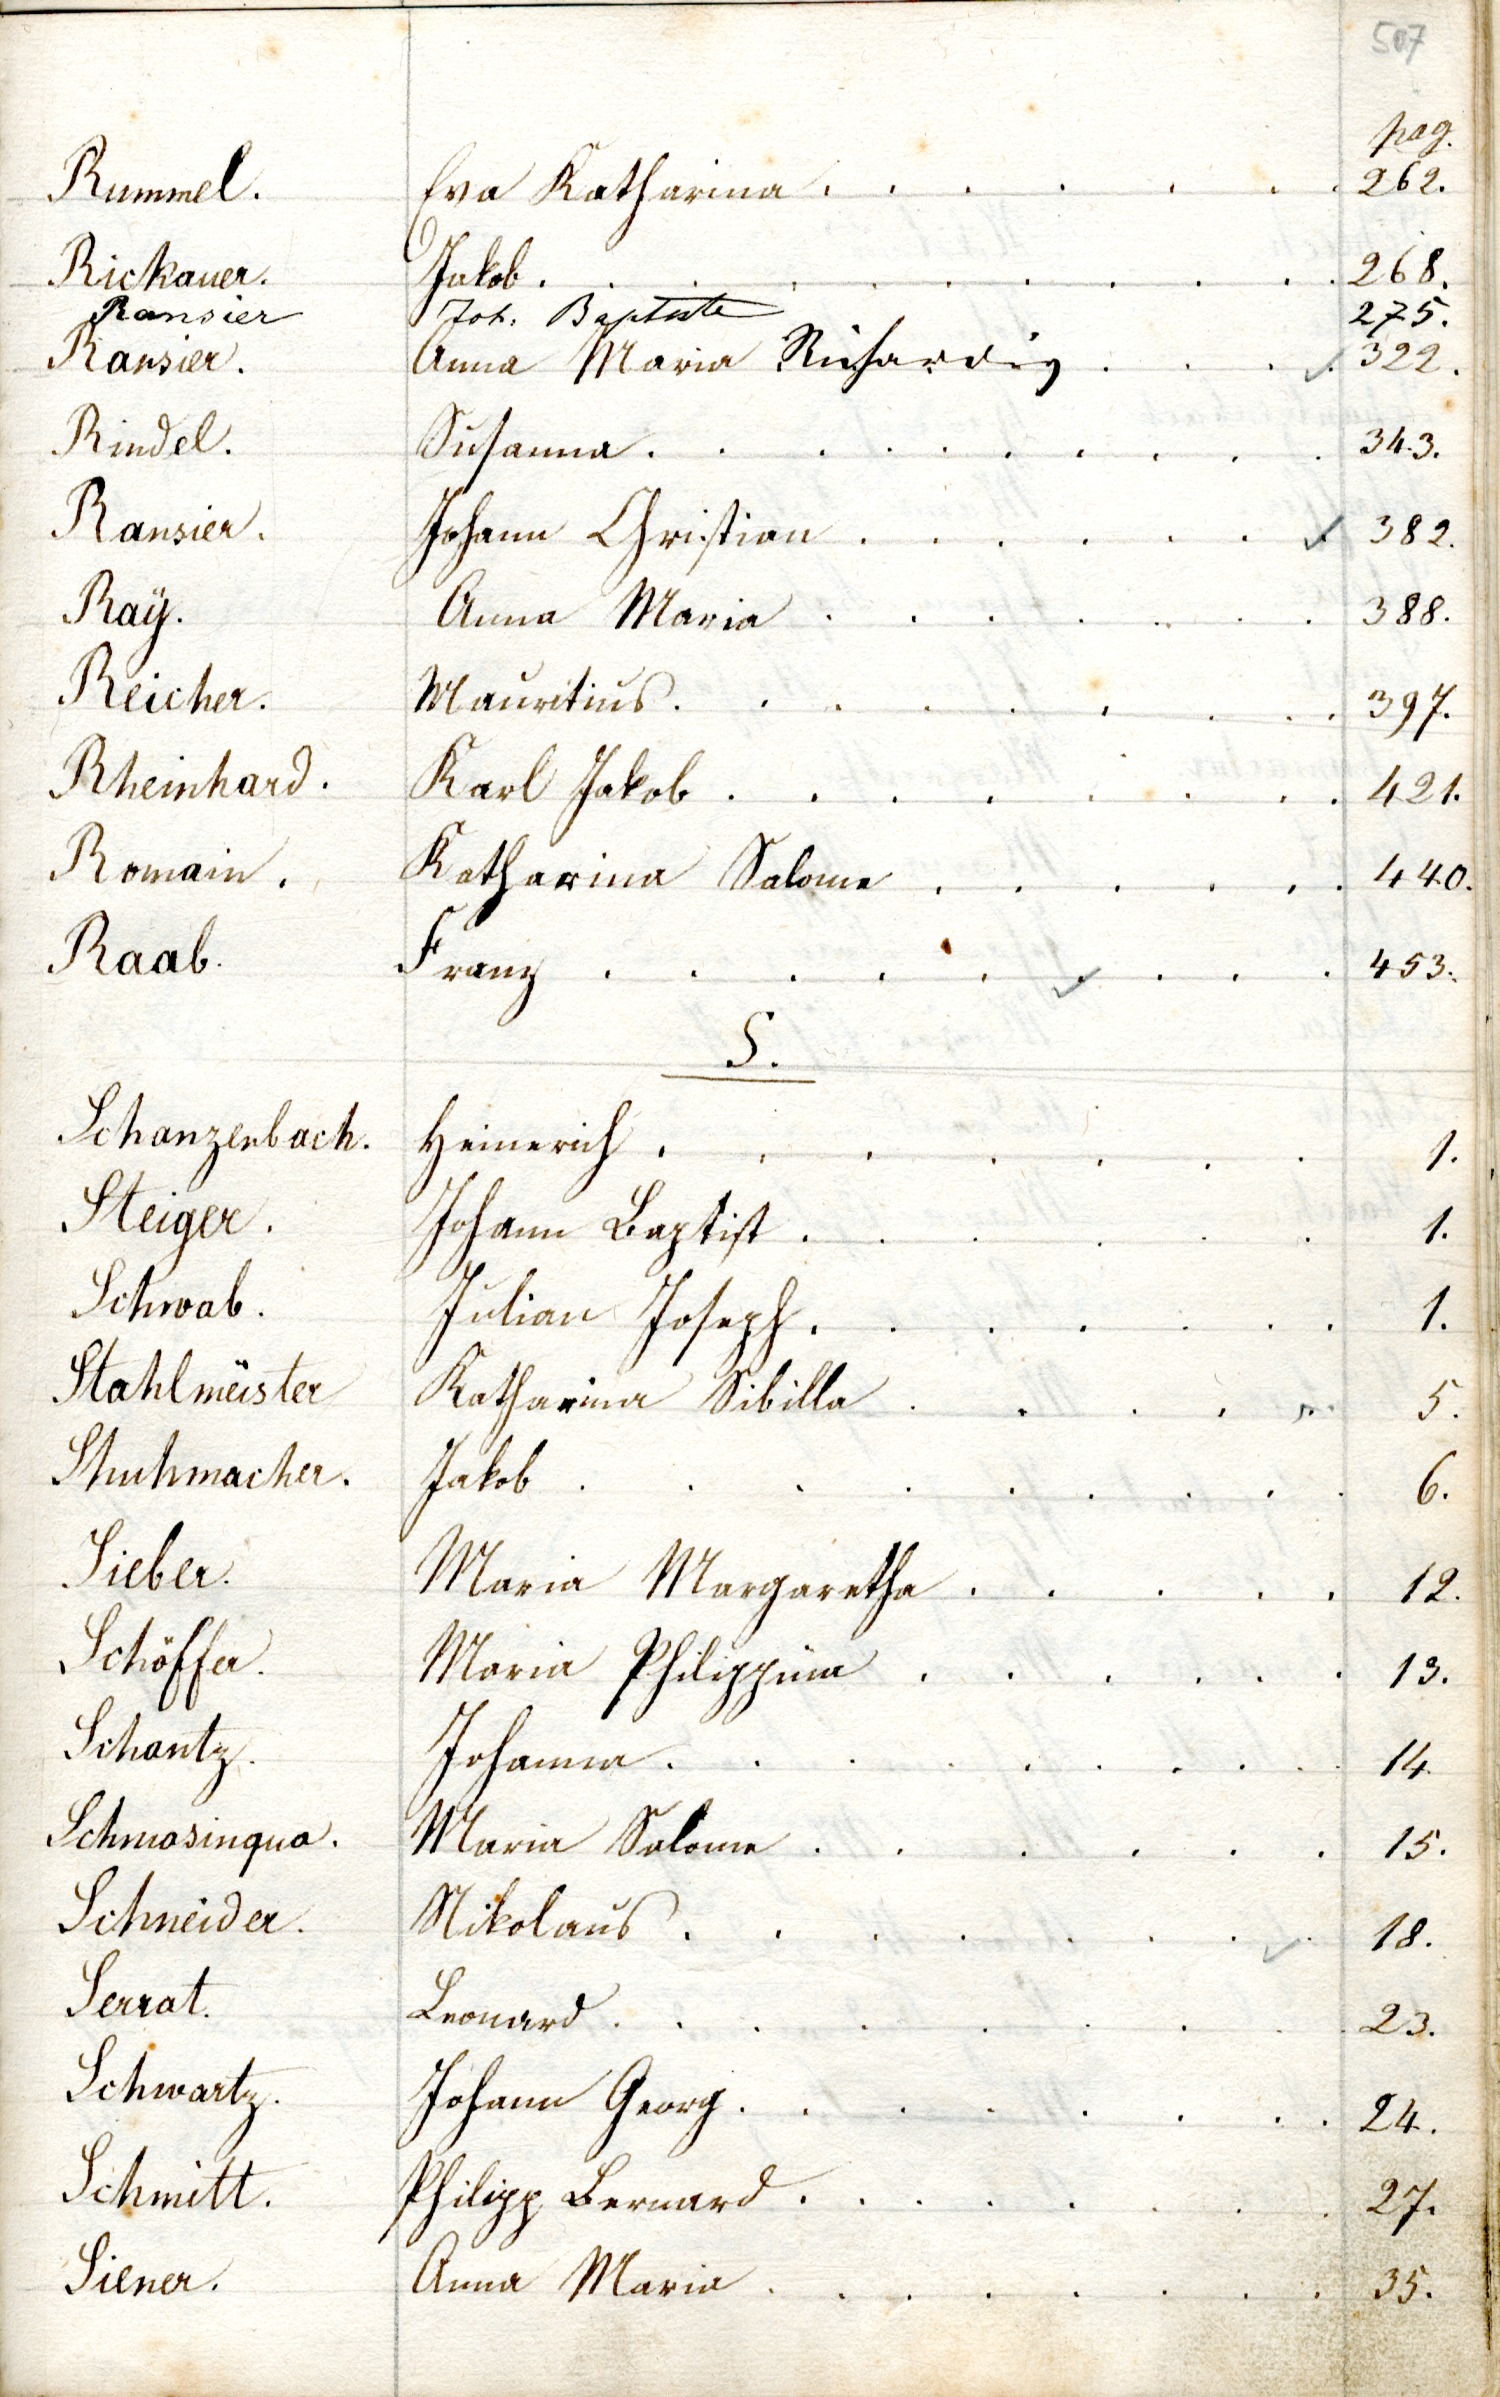 507
pag.
Rummel. Eva Katharina . . . . . . . 262.
Rickauer. Jakob . . . . . . . . . 268.
Ransier Joh. Baptiste 275.
Ransier. Anna Maria Richardis . . . . 322.
Rindel. Susanna . . . . . . . . . 343.
Ransier. Johann Christian . . . . . . 382.
Raÿ. Anna Maria . . . . . . . 388.
Reicher. Mauritius . . . . . . . . 397.
Rheinhard. Karl Jakob . . . . . . . . 421.
Romain. Katharina Salome . . . . . . 440.
Raab. Franz . . . . . . . . . 453.
S.
Schanzenbach. Heinerich . . . . . . . 1.
Steiger. Johann Baptist . . . . . . 1.
Schwab. Julian Joseph . . . . . . . 1.
Stahlmeister Katharina Sibilla . . . . . 5.
Shuhmacher. Jakob . . . . . . . . . 6.
Sieber. Maria Margaretha . . . . . 12.
Schöffer. Maria Philippina . . . . . . 13.
Schantz. Johanna . . . . . . . . 14
Schmosinqua. Maria Salome . . . . . . 15.
Schneider. Nikolaus . . . . . . . . 18.
Serrat. Leonard . . . . . . . . 23.
Schwartz. Johann Georg . . . . . . . 24.
Schmitt. Philipp Bernard . . . . . . . 27.
Siener. Anna Maria . . . . . . . 35.